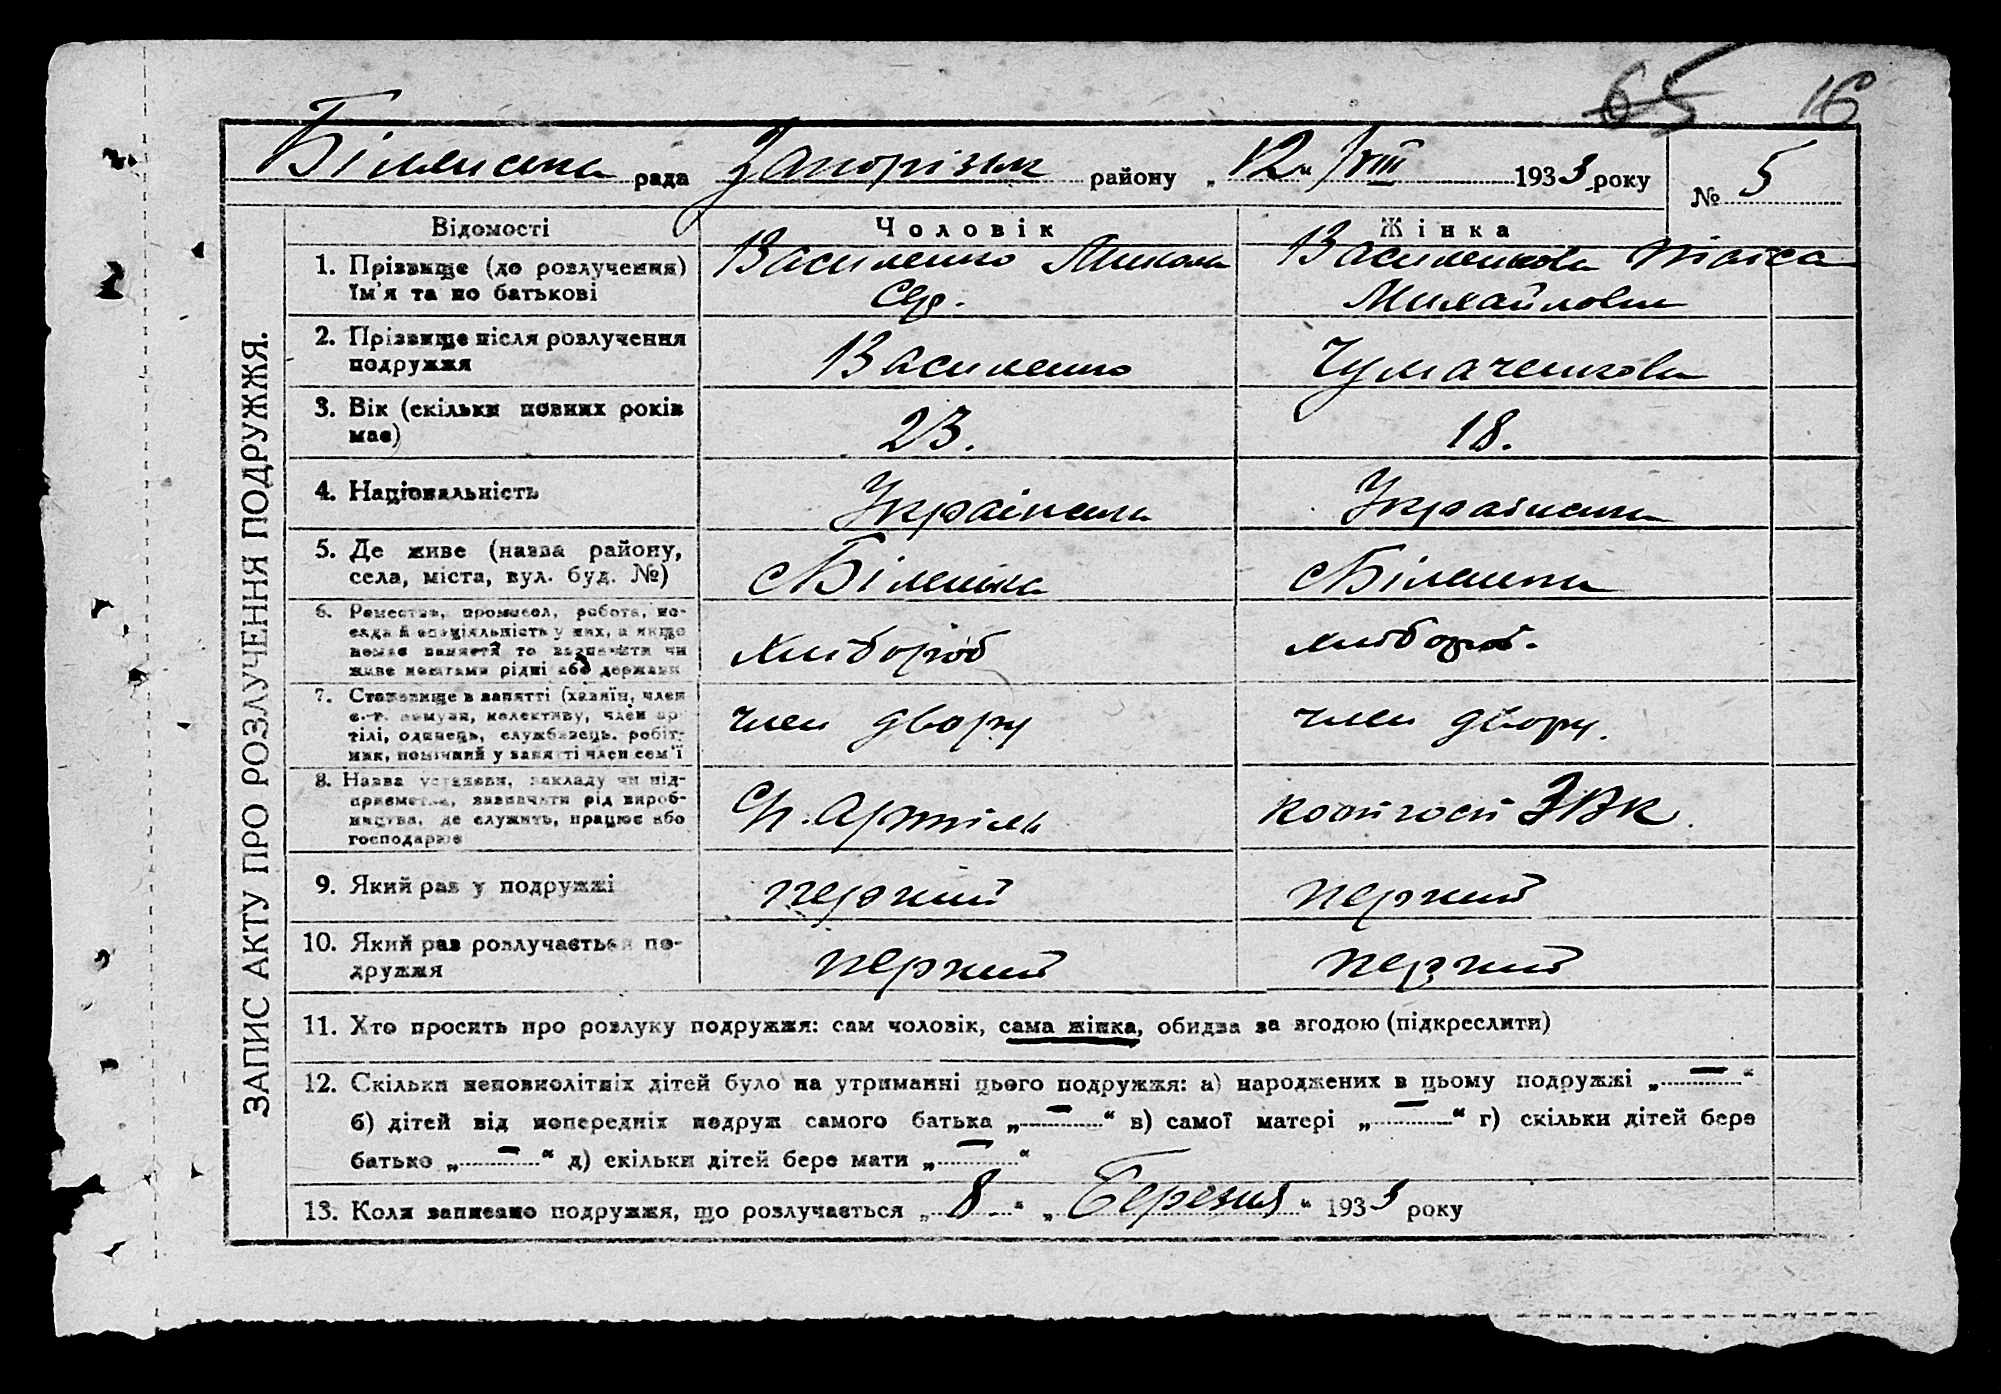 65 16
Біленська рада Запорізьк району „12“/VIII 1933 року
№ 5
ЗАПИС АКТУ ПРО РОЗЛУЧЕННЯ ПОДРУЖЖЯ.
Відомості Чоловік Жінка
1. Прізвище (до розлучення) Василенко Микола Василенкова
їм'я та по батькові Сер. Михайловна
2. Прізвище після розлучення
подружжя Василенко Чумаченкова
3. Вік (скільки повних років
має) 23. 18.
4. Національність Українец Українка
5. Де живе (назва району,
села, міста, вул. буд. №) с Біленька с Біленька
6. Ремество, промисел, робота, по-
сада й спеціяльність у них, а якщо
немає заняття то зазначити чи
живе коштами рідні або держави хлібороб хлібороб.
7. Становище в занятті (хазяїн, член
с.-г. комуни, колективу, член ар-
тілі, одинець, службовець, робіт-
ник, помічний у занятті член сем'ї член двору член двору.
8. Назва установи, закладу чи під-
приємства, зазначити рід вироб-
ництва, де служить, працює або
господарює Артіль ЗРК.
9. Який раз у подружжі перший перший
10. Який раз розлучається по-
дружжя перший перший
11. Хто просить про розлуку подружжя: сам чоловік, сама жінка, обидва за згодою (підкреслити)
12. Скільки неповнолітніх дітей було на утриманні цього подружжя: а) народжених в цьому подружжі „—“
б) дітей від попередніх подруж самого батька „—“ в) самої матері „—“ г) скільки дітей бере
батько „—“ д) скільки дітей бере мати „—“
13. Коли записано подружжя, що розлучається „8“ „Березня“ 1933 року